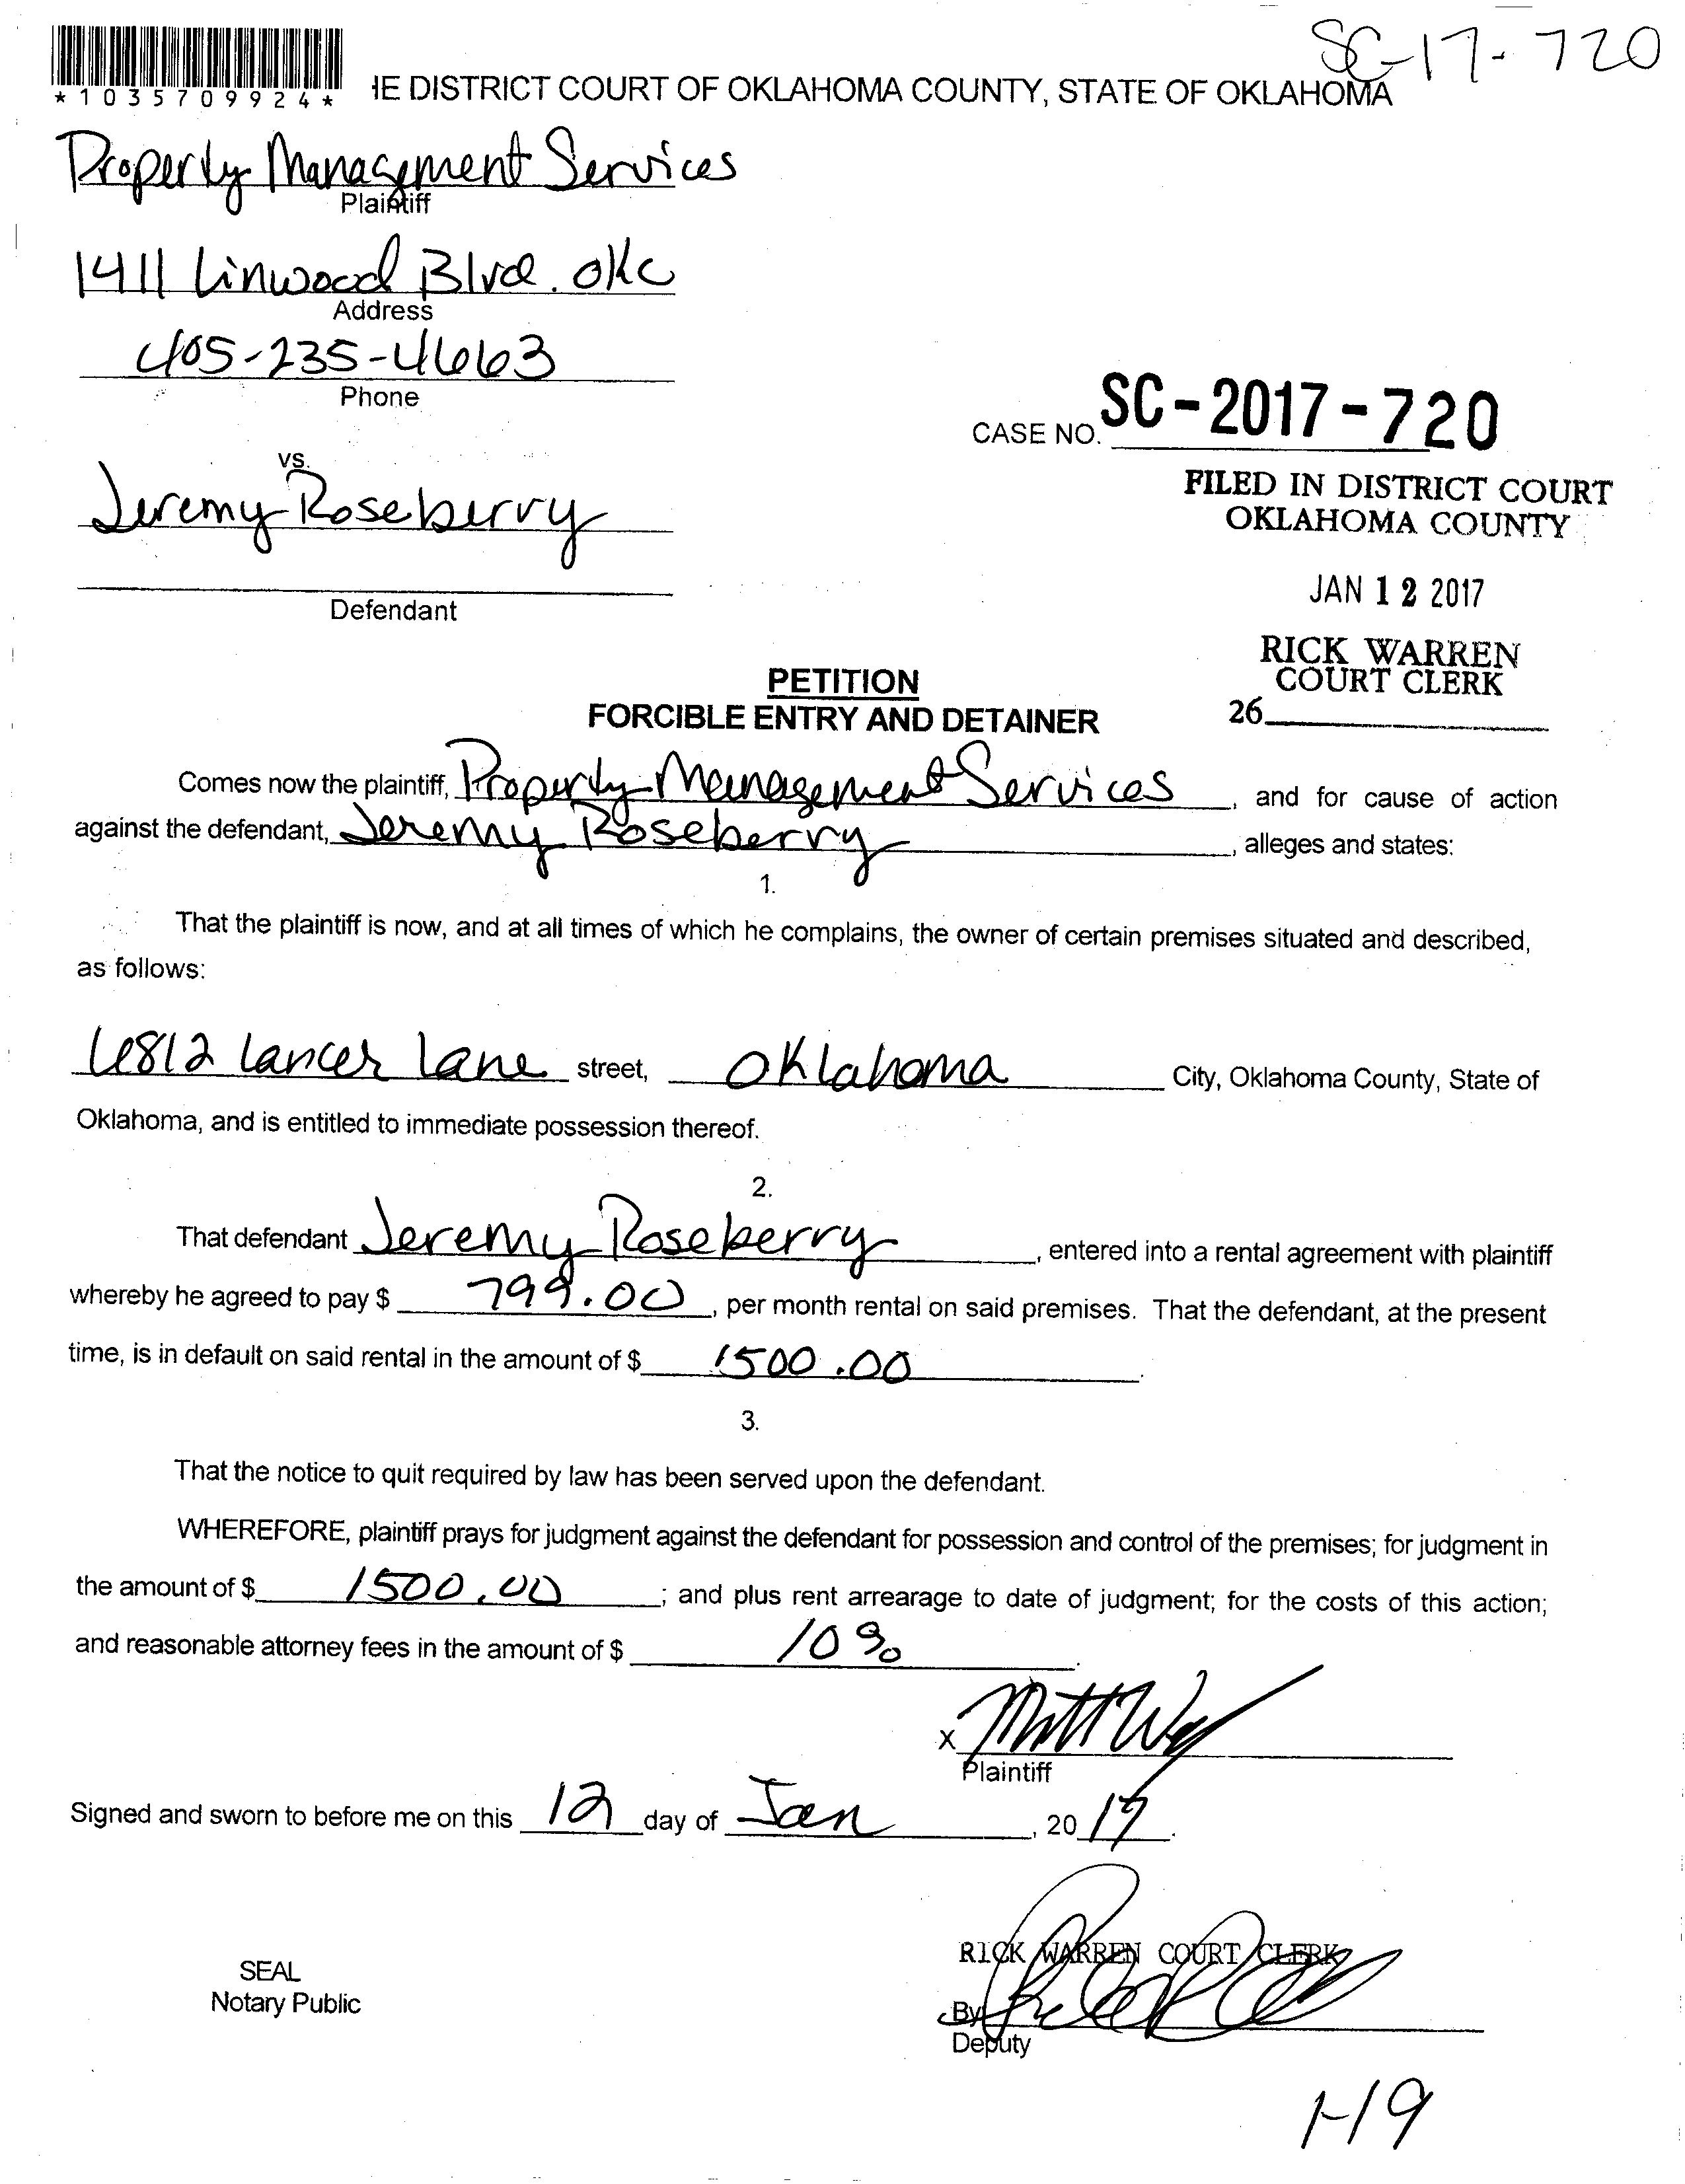 SC-17-720
*1035709924*
IE DISTRICT COURT OF OKLAHOMA COUNTY, STATE OF OKLAHOMA
Property Management Services
Plaintiff
1411 Linwood Blvd. OKC
Address
405-235-4663
Phone
CASE NO. SC-2017-720
vs.
Jeremy Roseberry
Defendant
FILED IN DISTRICT COURT
OKLAHOMA COUNTY
JAN 12 2017
RICK WARREN
COURT CLERK
26
PETITION
FORCIBLE ENTRY AND DETAINER
Comes now the plaintiff, Property Management Services, and for cause of action
against the defendant, Jeremy Roseberry, alleges and states:
1.
That the plaintiff is now, and at all times of which he complains, the owner of certain premises situated and described,
as follows:
6812 Lancer Lane street, Oklahoma City, Oklahoma County, State of
Oklahoma, and is entitled to immediate possession thereof.
2.
That defendant Jeremy Roseberry, entered into a rental agreement with plaintiff
whereby he agreed to pay $ 799.00, per month rental on said premises. That the defendant, at the present
time, is in default on said rental in the amount of $ 1500.00.
3.
That the notice to quit required by law has been served upon the defendant.
WHEREFORE, plaintiff prays for judgment against the defendant for possession and control of the premises; for judgment in
the amount of $ 1500.00; and plus rent arrearage to date of judgment; for the costs of this action;
and reasonable attorney fees in the amount of $ 10%.
X
Plaintiff
Signed and sworn to before me on this 12 day of Jan, 20 17.
RICK WARREN COURT CLERK
SEAL
Notary Public
By
Deputy
1-19